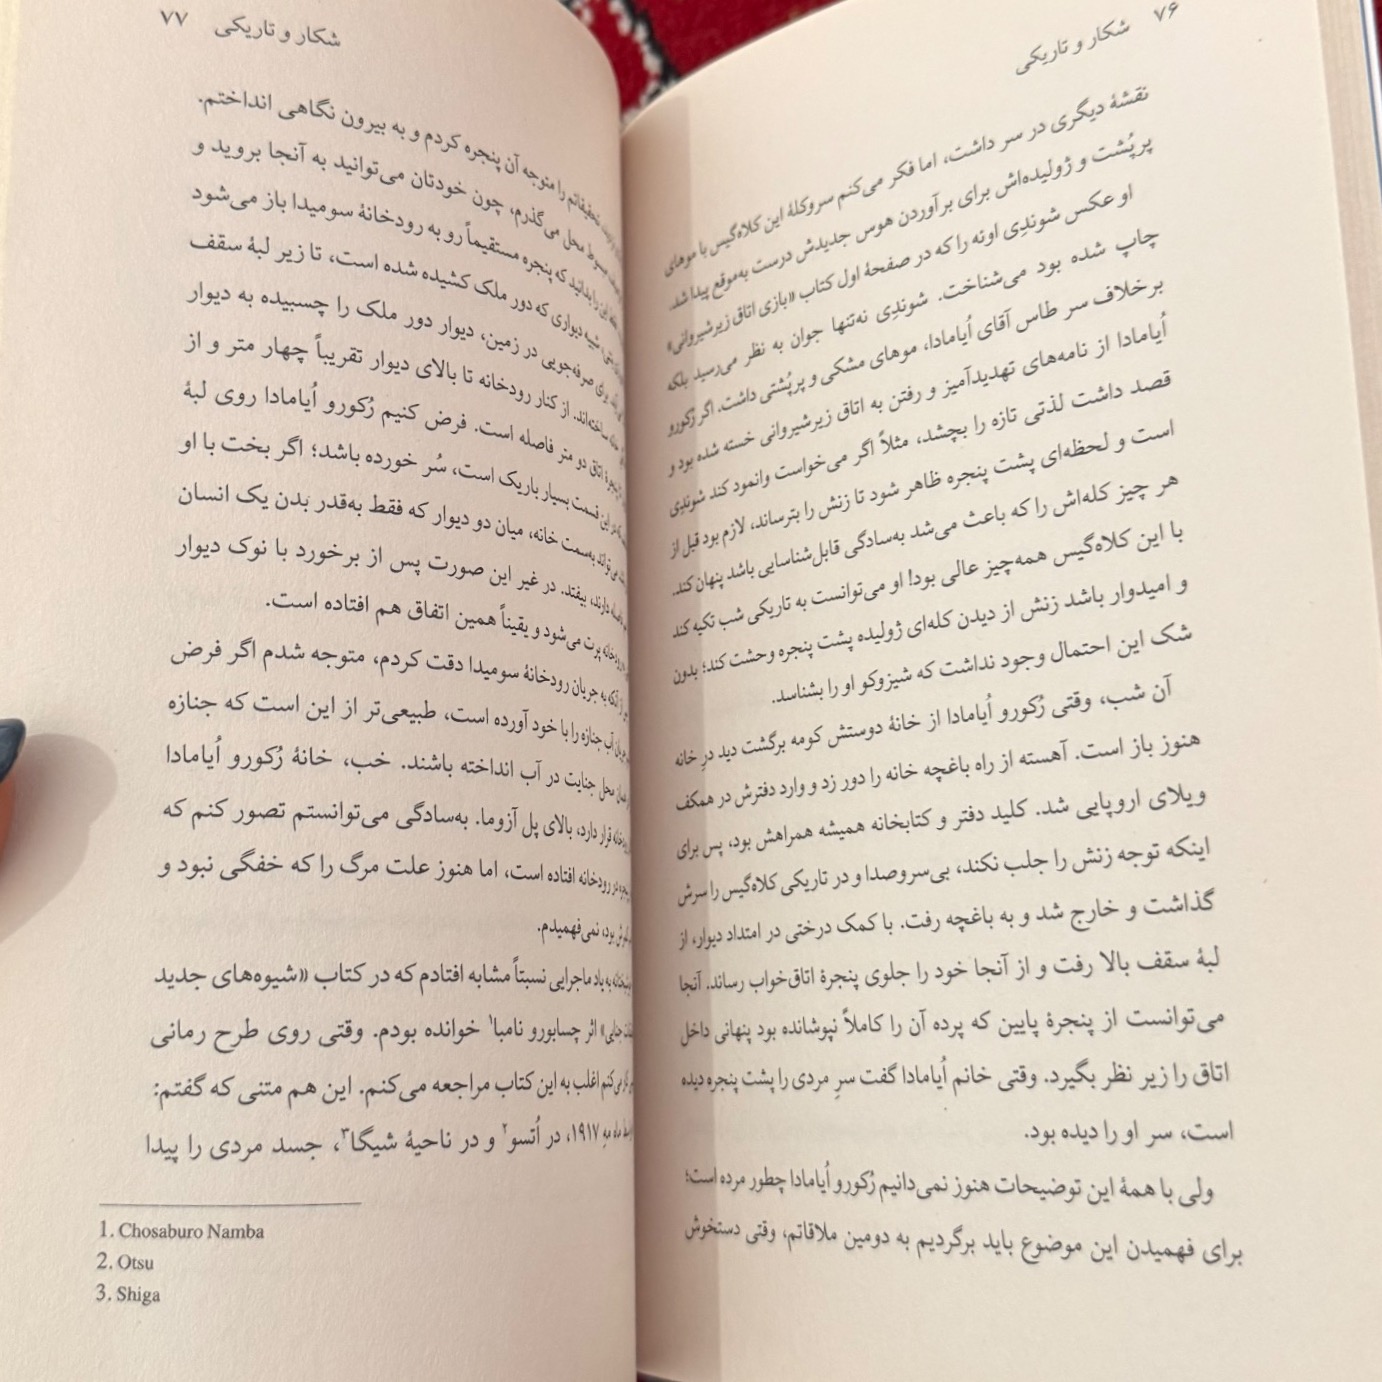 ۷۶ شکار و تاریکی
نقشهٔ دیگری در سر داشت، اما فکر می‌کنم سروکلهٔ این کلاه‌گیس با موهای
پرپُشت و ژولیده‌اش برای برآوردن هوس جدیدش درست به‌موقع پیدا شد.
او عکس شوندِی اوئه را که در صفحهٔ اول کتاب «بازی اتاق زیرشیروانی»
چاپ شده بود می‌شناخت. شوندِی نه‌تنها جوان به نظر می‌رسید بلکه
برخلاف سر طاس آقای اُیامادا، موهای مشکی و پرپُشتی داشت. اگر رُکورو
اُیامادا از نامه‌های تهدیدآمیز و رفتن به اتاق زیرشیروانی خسته شده بود و
قصد داشت لذتی تازه را بچشد، مثلاً اگر می‌خواست وانمود کند شوندِی
است و لحظه‌ای پشت پنجره ظاهر شود تا زنش را بترساند، لازم بود قبل از
هر چیز کله‌اش را که باعث می‌شد به‌سادگی قابل‌شناسایی باشد پنهان کند.
با این کلاه‌گیس همه‌چیز عالی بود! او می‌توانست به تاریکی شب تکیه کند
و امیدوار باشد زنش از دیدن کله‌ای ژولیده پشت پنجره وحشت کند؛ بدون
شک این احتمال وجود نداشت که شیزوکو او را بشناسد.
آن شب، وقتی رُکورو اُیامادا از خانهٔ دوستش کومه برگشت دید درِ خانه
هنوز باز است. آهسته از راه باغچه خانه را دور زد و وارد دفترش در همکف
ویلای اروپایی شد. کلید دفتر و کتابخانه همیشه همراهش بود، پس برای
اینکه توجه زنش را جلب نکند، بی‌سروصدا و در تاریکی کلاه‌گیس را سرش
گذاشت و خارج شد و به باغچه رفت. با کمک درختی در امتداد دیوار، از
لبهٔ سقف بالا رفت و از آنجا خود را جلوی پنجرهٔ اتاق‌خواب رساند. آنجا
می‌توانست از پنجرهٔ پایین که پرده آن را کاملاً نپوشانده بود پنهانی داخل
اتاق را زیر نظر بگیرد. وقتی خانم اُیامادا گفت سرِ مردی را پشت پنجره دیده
است، سر او را دیده بود.
ولی با همهٔ این توضیحات هنوز نمی‌دانیم رُکورو اُیامادا چطور مرده است؛
برای فهمیدن این موضوع باید برگردیم به دومین ملاقاتم، وقتی دستخوش
شکار و تاریکی ۷۷
تحقیقاتم را متوجه آن پنجره کردم و به بیرون نگاهی انداختم.
محل می‌گذرم، چون خودتان می‌توانید به آنجا بروید و
این را بدانید که پنجره مستقیماً رو به رودخانهٔ سومیدا باز می‌شود
شبیه دیواری که دور ملک کشیده شده است، تا زیر لبهٔ سقف
برای صرفه‌جویی در زمین، دیوار دور ملک را چسبیده به دیوار
ساخته‌اند. از کنار رودخانه تا بالای دیوار تقریباً چهار متر و از
اتاق دو متر فاصله است. فرض کنیم رُکورو اُیامادا روی لبهٔ
این قسمت بسیار باریک است، سُر خورده باشد؛ اگر بخت با او
می‌تواند به‌سمت خانه، میان دو دیوار که فقط به‌قدر بدن یک انسان
دارند، بیفتد. در غیر این صورت پس از برخورد با نوک دیوار
پرت می‌شود و یقیناً همین اتفاق هم افتاده است.
به جریان رودخانهٔ سومیدا دقت کردم، متوجه شدم اگر فرض
آب جنازه را با خود آورده است، طبیعی‌تر از این است که جنازه
محل جنایت در آب انداخته باشند. خب، خانهٔ رُکورو اُیامادا
قرار دارد، بالای پل آزوما. به‌سادگی می‌توانستم تصور کنم که
در رودخانه افتاده است، اما هنوز علت مرگ را که خفگی نبود و
بود، نمی‌فهمیدم.
به یاد ماجرایی نسبتاً مشابه افتادم که در کتاب «شیوه‌های جدید
جنایی» اثر چسابورو نامبا۱ خوانده بودم. وقتی روی طرح رمانی
می‌کنم اغلب به این کتاب مراجعه می‌کنم. این هم متنی که گفتم:
ماه مهٔ ۱۹۱۷، در اُتسو۲ و در ناحیهٔ شیگا۳، جسد مردی را پیدا
1. Chosaburo Namba
2. Otsu
3. Shiga